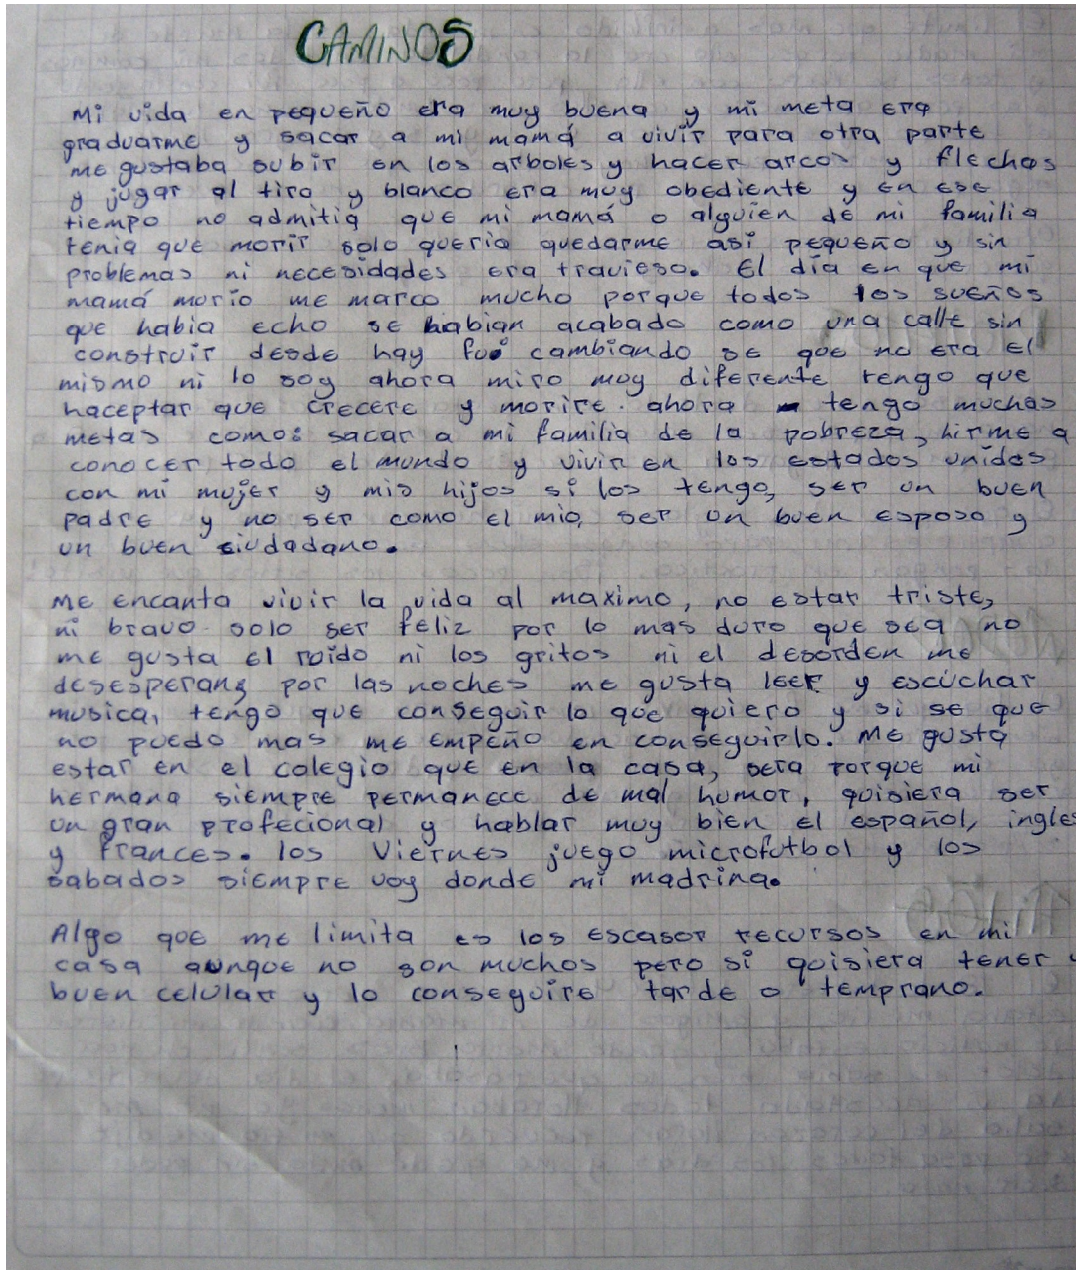 CAMINOS
Mi vida en pequeño era muy buena y mi meta era
graduarme y sacar a mi mamá a vivir para otra parte
me gustaba subir en los arboles y hacer arcos y flechas
y jugar al tiro y blanco era muy obediente y en ese
tiempo no admitia que mi mamá o alguien de mi familia
tenia que morir solo queria quedarme asi pequeño y sin
problemas ni necesidades era travieso. El día en que mi
mamá murio me marco mucho porque todos los sueños
que habia echo se habian acabado como una calle sin
construir desde hay fue cambiando se que no era el
mismo ni lo soy ahora miro muy diferente tengo que
haceptar que crecere y morire. ahora tengo muchas
metas como: sacar a mi familia de la pobreza, hirme a
conocer todo el mundo y vivir en los estados unidos
con mi mujer y mis hijos si los tengo, ser un buen
padre y no ser como el mio, ser un buen esposo y
un buen siudadano.
Me encanta vivir la vida al maximo, no estar triste,
ni bravo solo ser feliz por lo mas duro que sea no
me gusta el roido ni los gritos ni el desorden me
desesperan, por las noches me gusta leer y escuchar
musica, tengo que conseguir lo que quiero y si se que
no puedo mas me empeño en conseguirlo. Me gusta
estar en el colegio que en la casa, sera porque mi
hermana siempre permanece de mal humor, quisiera ser
un gran profecional y hablar muy bien el español, ingles
y frances. los Viernes juego microfutbol y los
sabados siempre voy donde mi madrina.
Algo que me limita es los escasor recursos en mi
casa aunque no son muchos pero si quisiera tener
buen celular y lo conseguire tarde o temprano.